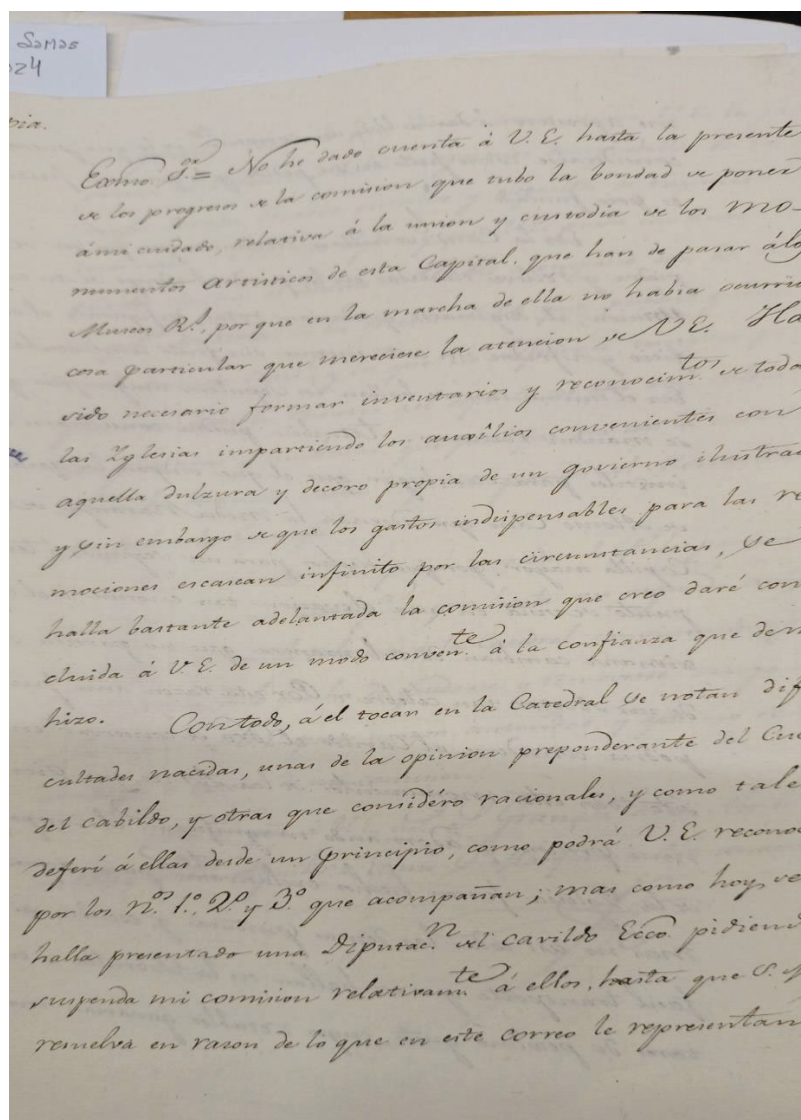 Samas
024
pia.
Exmo. S.ʳ = No he dado cuenta á V.E. hasta la presente
de los progresos de la comision que tubo la bondad de poner
ámi cuidado, relativa á la union y custodia de los mo-
numentos artisticos de esta Capital, que han de pasar álo
Museos R.ˢ, por que en la marcha de ella no habia ocurrido
cosa particular que mereciese la atencion de V.E. Ha
sido necesario formar inventarios y reconocim.ᵗᵒˢ de toda
las Yglesias impartiendo los auxîlios convenientes con
aquella dulzura y decoro propia de un govierno ilustrad
y sin embargo de que los gastos indispensables para las re
mociones escasean infinito por las circunstancias, se
halla bastante adelantada la comision que creo daré con
cluida á V.E. de un modo conven.ᵗᵉ á la confianza que de mi
hizo. Con todo, á el tocar en la Catedral se notan difi
cultades nacidas, unas de la opinion preponderante del Cue
del cabildo, y otras que considéro racionales, y como tale
deferí á ellas desde un principio, como podrá V.E. reconoc
por los n.ᵒˢ 1.º, 2.º y 3.º que acompañan; mas como hoy se
halla presentado una Diputac.ⁿ del cavildo Ecco. pidiend
suspenda mi comision relativam.ᵗᵉ á ellos, hasta que S.M
resuelva en razon de lo que en este correo le representan